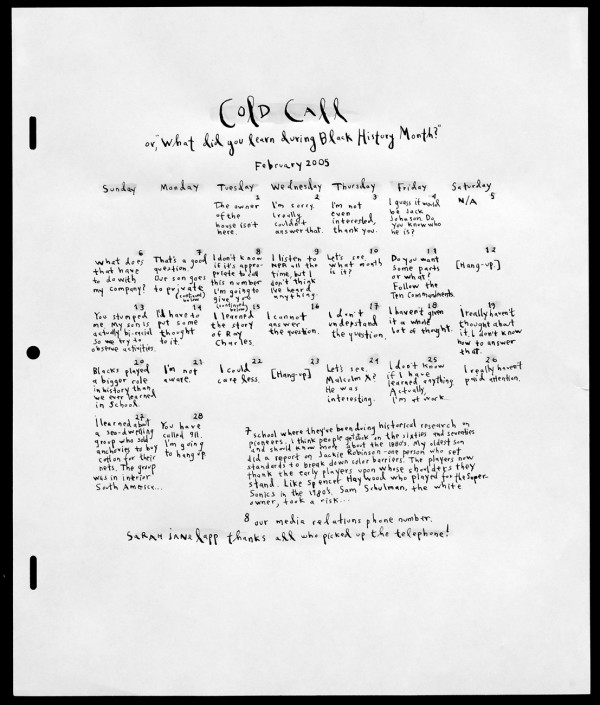 Cold Call
or, "What did you learn during Black History Month?"
February 2005
Sunday Monday Tuesday Wednesday Thursday Friday Saturday
1
The owner
of the
house isn't
here.
2
I'm sorry.
I really
couldn't
answer that.
3
I'm not
even
interested,
thank you.
4
I guess it would
be Jack
Johnson. Do
you know who
he is?
5
N/A
6
What does
that have
to do with
my company?
7
That's a good
question
Our son goes
to private
(continued
below)
8
I don't know
if it's appro-
priate to call
this number
I'm going to
give you
(continued
below)
9
I listen to
NPR all the
time, but I
don't think
I've heard
anything.
10
Let's see,
what month
is it?
11
Do you want
some parts
or what?
Follow the
Ten Commandments.
12
[Hang-up.]
13
You stumped
me. My son is
actually bi-racial
so we try to
observe activities.
14
I'd have to
put some
thought
to it.
15
I learned
the story
of Ray
Charles.
16
I cannot
answer
the question.
17
I don't
understand
the question.
18
I haven't given
it a whole
lot of thought.
19
I really haven't
thought about
it. I don't know
how to answer
that.
20
Blacks played
a bigger role
in history than
we ever learned
in school.
21
I'm not
aware.
22
I could
care less.
23
[Hang-up]
24
Let's see.
Malcolm X?
He was
interesting.
25
I don't know
if I have
learned anything.
Actually,
I'm at work...
26
I really haven't
paid attention.
27
I learned about
a sea-dwelling
group who sold
anchovies to buy
cotton for their
nets. The group
was in interior
South America...
28
You have
called 911.
I'm going
to hang up.
7 school where they've been doing historical research on
pioneers. I think people get stuck on the sixties and seventies
and should know more about the 1800's. My oldest son
did a report on Jackie Robinson - one person who set
standards to break down color barriers. The players now
thank the early players upon whose shoulders they
stand. Like Spencer Haywood who played for the Super-
Sonics in the 1980's. Sam Schulman, the white
owner, took a risk...
8 our media relations phone number.
Sarah Jane Lapp thanks all who picked up the telephone!